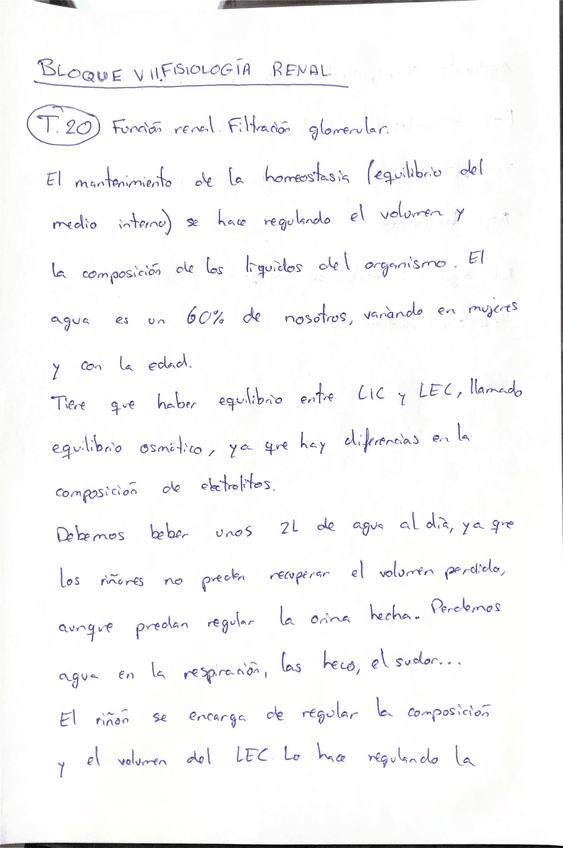 BLOQUE VII. FISIOLOGÍA RENAL
T.20 Función renal. Filtración glomerular.
El mantenimiento de la homeostasia (equilibrio del
medio interno) se hace regulando el volumen y
la composición de los líquidos del organismo. El
agua es un 60% de nosotros, variando en mujeres
y con la edad.
Tiene que haber equilibrio entre LIC y LEC, llamado
equilibrio osmótico, ya que hay diferencias en la
composición de electrolitos.
Debemos beber unos 2L de agua al día, ya que
los riñones no pueden recuperar el volumen perdido,
aunque puedan regular la orina hecha. Perdemos
agua en la respiración, las heces, el sudor...
El riñón se encarga de regular la composición
y el volumen del LEC. Lo hace regulando la